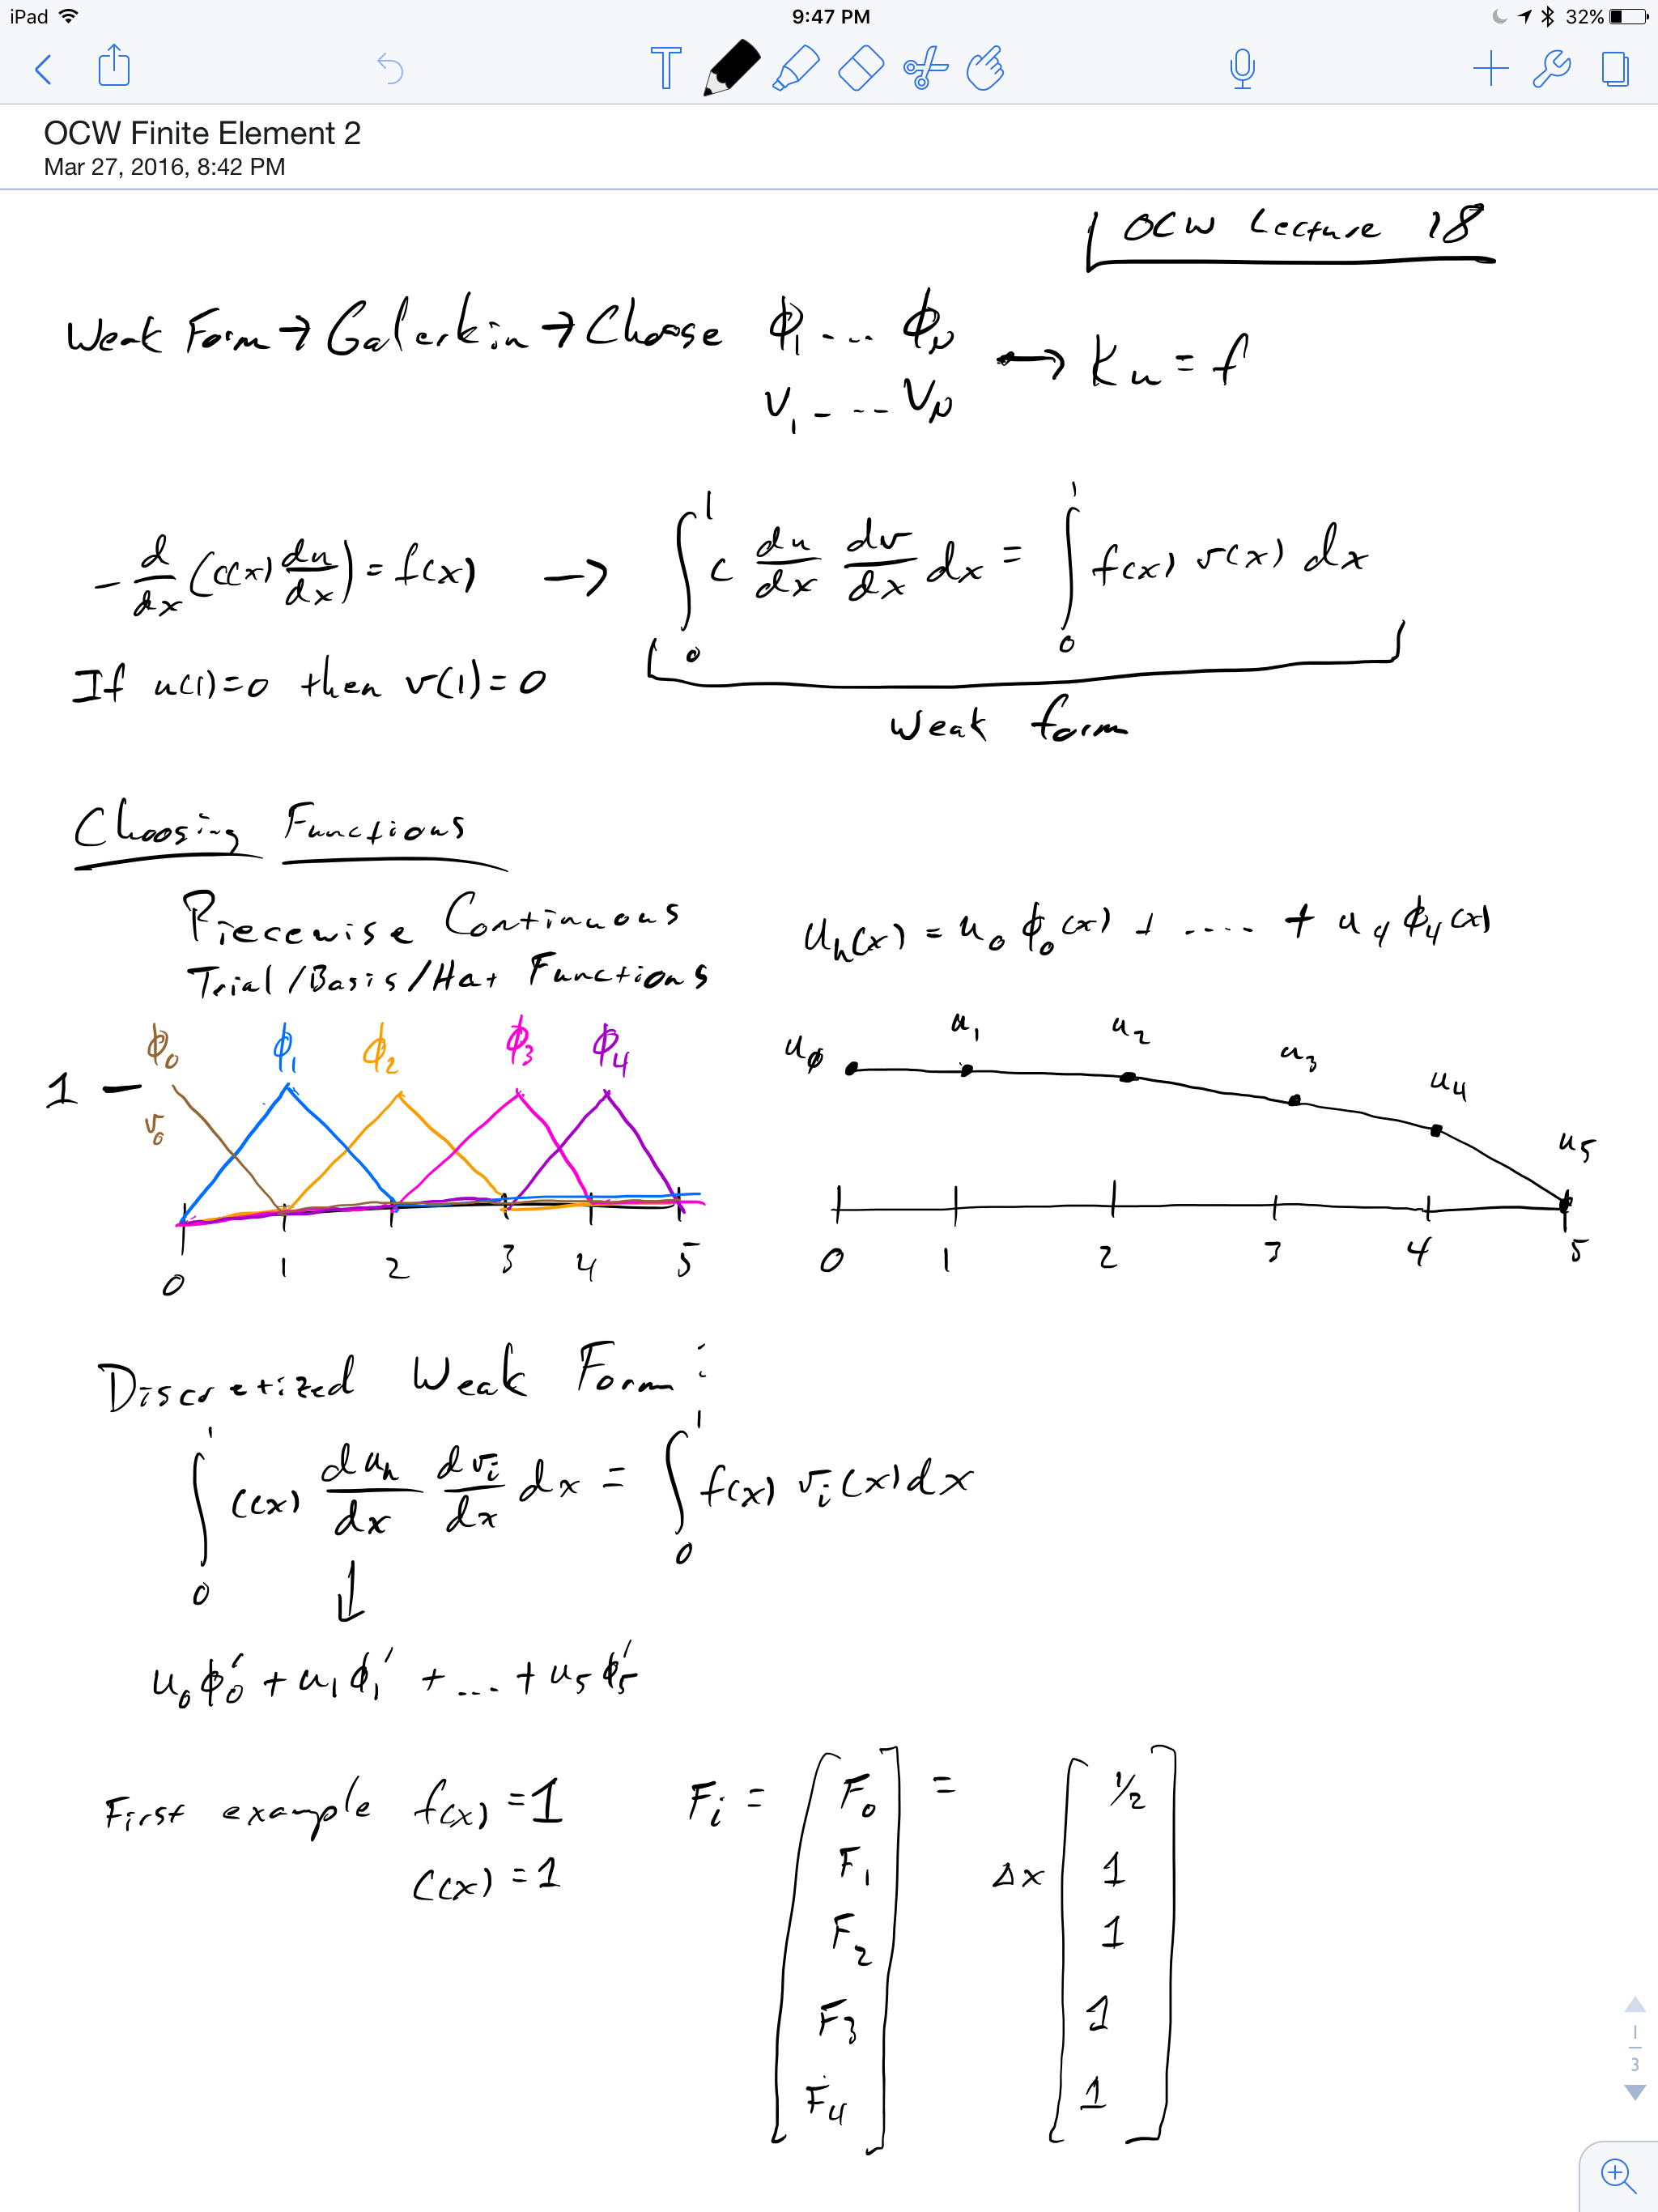 iPad 9:47 PM 32%
T
OCW Finite Element 2
Mar 27, 2016, 8:42 PM
OCW Lecture 18
Weak Form → Galerkin → Choose ϕ₁ ... ϕ_N → Ku = f
V₁ ... V_N
-d/dx (c(x) du/dx) = f(x) → ∫₀¹ c du/dx dv/dx dx = ∫₀¹ f(x) v(x) dx
If u(1)=0 then v(1)=0
Weak form
Choosing Functions
Piecewise Continuous
Trial/Basis/Hat Functions
u_h(x) = u₀ ϕ₀(x) + .... + u₄ ϕ₄(x)
ϕ₀ ϕ₁ ϕ₂ ϕ₃ ϕ₄
1 –
v₀
0 1 2 3 4 5
u₀ u₁ u₂ u₃ u₄ u₅
0 1 2 3 4 5
Discretized Weak Form:
∫₀¹ c(x) du_h/dx dv_i/dx dx = ∫₀¹ f(x) v_i(x) dx
↓
u₀ϕ₀' + u₁ϕ₁' + ... + u₅ϕ₅'
First example f(x) = 1
c(x) = 1
F_i = [F₀ F₁ F₂ F₃ F₄] = Δx [1/2 1 1 1 1]
1
3